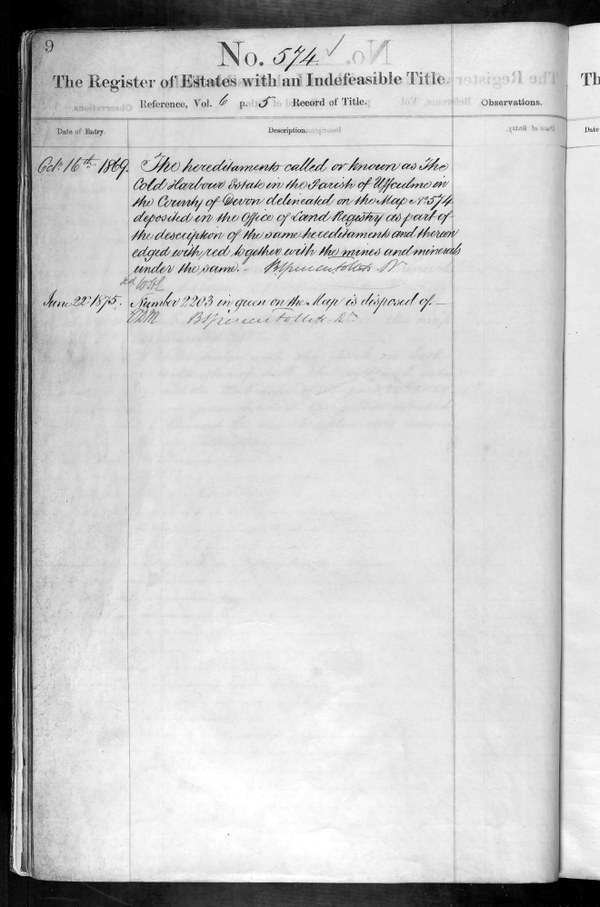 9
No. 574
The Register of Estates with an Indefeasible Title.
Reference, Vol. 6 p. 5 Record of Title.
Observations.
Date of Entry.
Description.
Oct. 16th 1869.
The hereditaments called or known as The
Cold Harbour Estate in the Parish of Uffculme in
the County of Devon delineated on the Map No. 574
deposited in the Office of Land Registry as part of
the description of the same hereditaments and thereon
edged with red together with the mines and minerals
under the same.
June 22nd 1875.
Number 2203 in green on the Map is disposed of
Th
Date